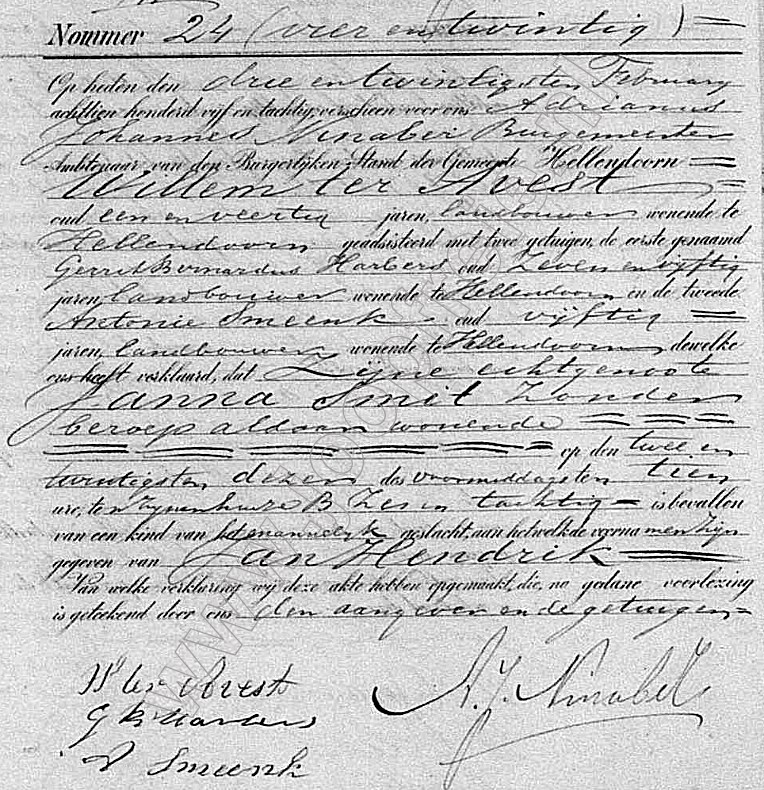 Nommer 24 (vier en twintig) =
Op heden den drie en twintigsten February
achttien honderd vijf en tachtig, verscheen voor ons Adrianus
Johannes Ninaber Burgemeester
Ambtenaar van den Burgerlijken Stand der Gemeente Hellendoorn =
Willem ter Avest =
oud een en veertig jaren, landbouwer wonende te
Hellendoorn geadsisteerd met twee getuigen, de eerste genaamd
Gerrit Bernardus Harbers oud Zeven en vijftig
jaren, landbouwer wonende te Hellendoorn en de tweede
Antonie Smeenk oud vijftig =
jaren, landbouwer wonende te Hellendoorn, dewelke
ons heeft verklaard, dat Zijne echtgenoote
Janna Smit Zonder
beroep aldaar wonende = = =
= = = = = = op den twee en
twintigsten dezer des voormiddags ten tien
ure, ten zijnen huize B Zes en tachtig = is bevallen
van een kind van het mannelijk geslacht, aan hetwelk de voornamen zijn
gegeven van Jan Hendrik =
Van welke verklaring wij deze akte hebben opgemaakt, die, na gedane voorlezing
is geteekend door ons den aangever en de getuigen =
W ter Avest
A. J. Ninaber
G B Harbers
A Smeenk